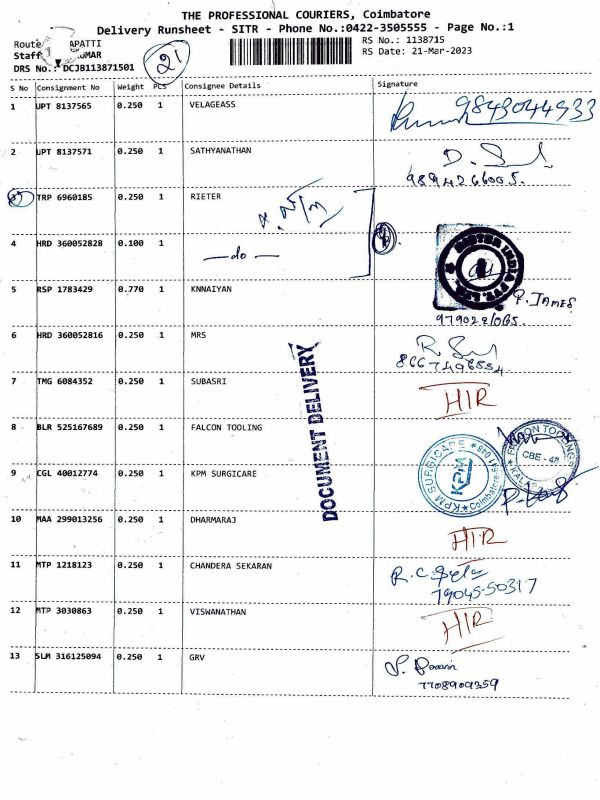 THE PROFESSIONAL COURIERS, Coimbatore
Delivery Runsheet - SITR - Phone No.:0422-3505555 - Page No.:1
Route APATTI
RS No.: 1138715
Staff UMAR
RS Date: 21-Mar-2023
DRS No.: DCJB113871501
21
S No Consignment No Weight PCS Consignee Details Signature
1 UPT 8137565 0.250 1 VELAGEASS
9843044933
2 UPT 8137571 0.250 1 SATHYANATHAN
9894266005.
3 TRP 6960185 0.250 1 RIETER
4 HRD 360052828 0.100 1 —do—
5 RSP 1783429 0.770 1 KNNAIYAN
P. JAMES
6 HRD 360052816 0.250 1 MRS
8667496554
7 TMG 6084352 0.250 1 SUBASRI HIR
DOCUMENT DELIVERY
8 BLR 525167689 0.250 1 FALCON TOOLING
FALCON TOOLINGS
CBE - 48
9 CGL 40012774 0.250 1 KPM SURGICARE
KPM SURGICARE
KPM
10 MAA 299013256 0.250 1 DHARMARAJ HIR
11 MTP 1218123 0.250 1 CHANDERA SEKARAN
79045-50317
12 MTP 3030863 0.250 1 VISWANATHAN HIR
13 SLM 316125094 0.250 1 GRV
7708909359